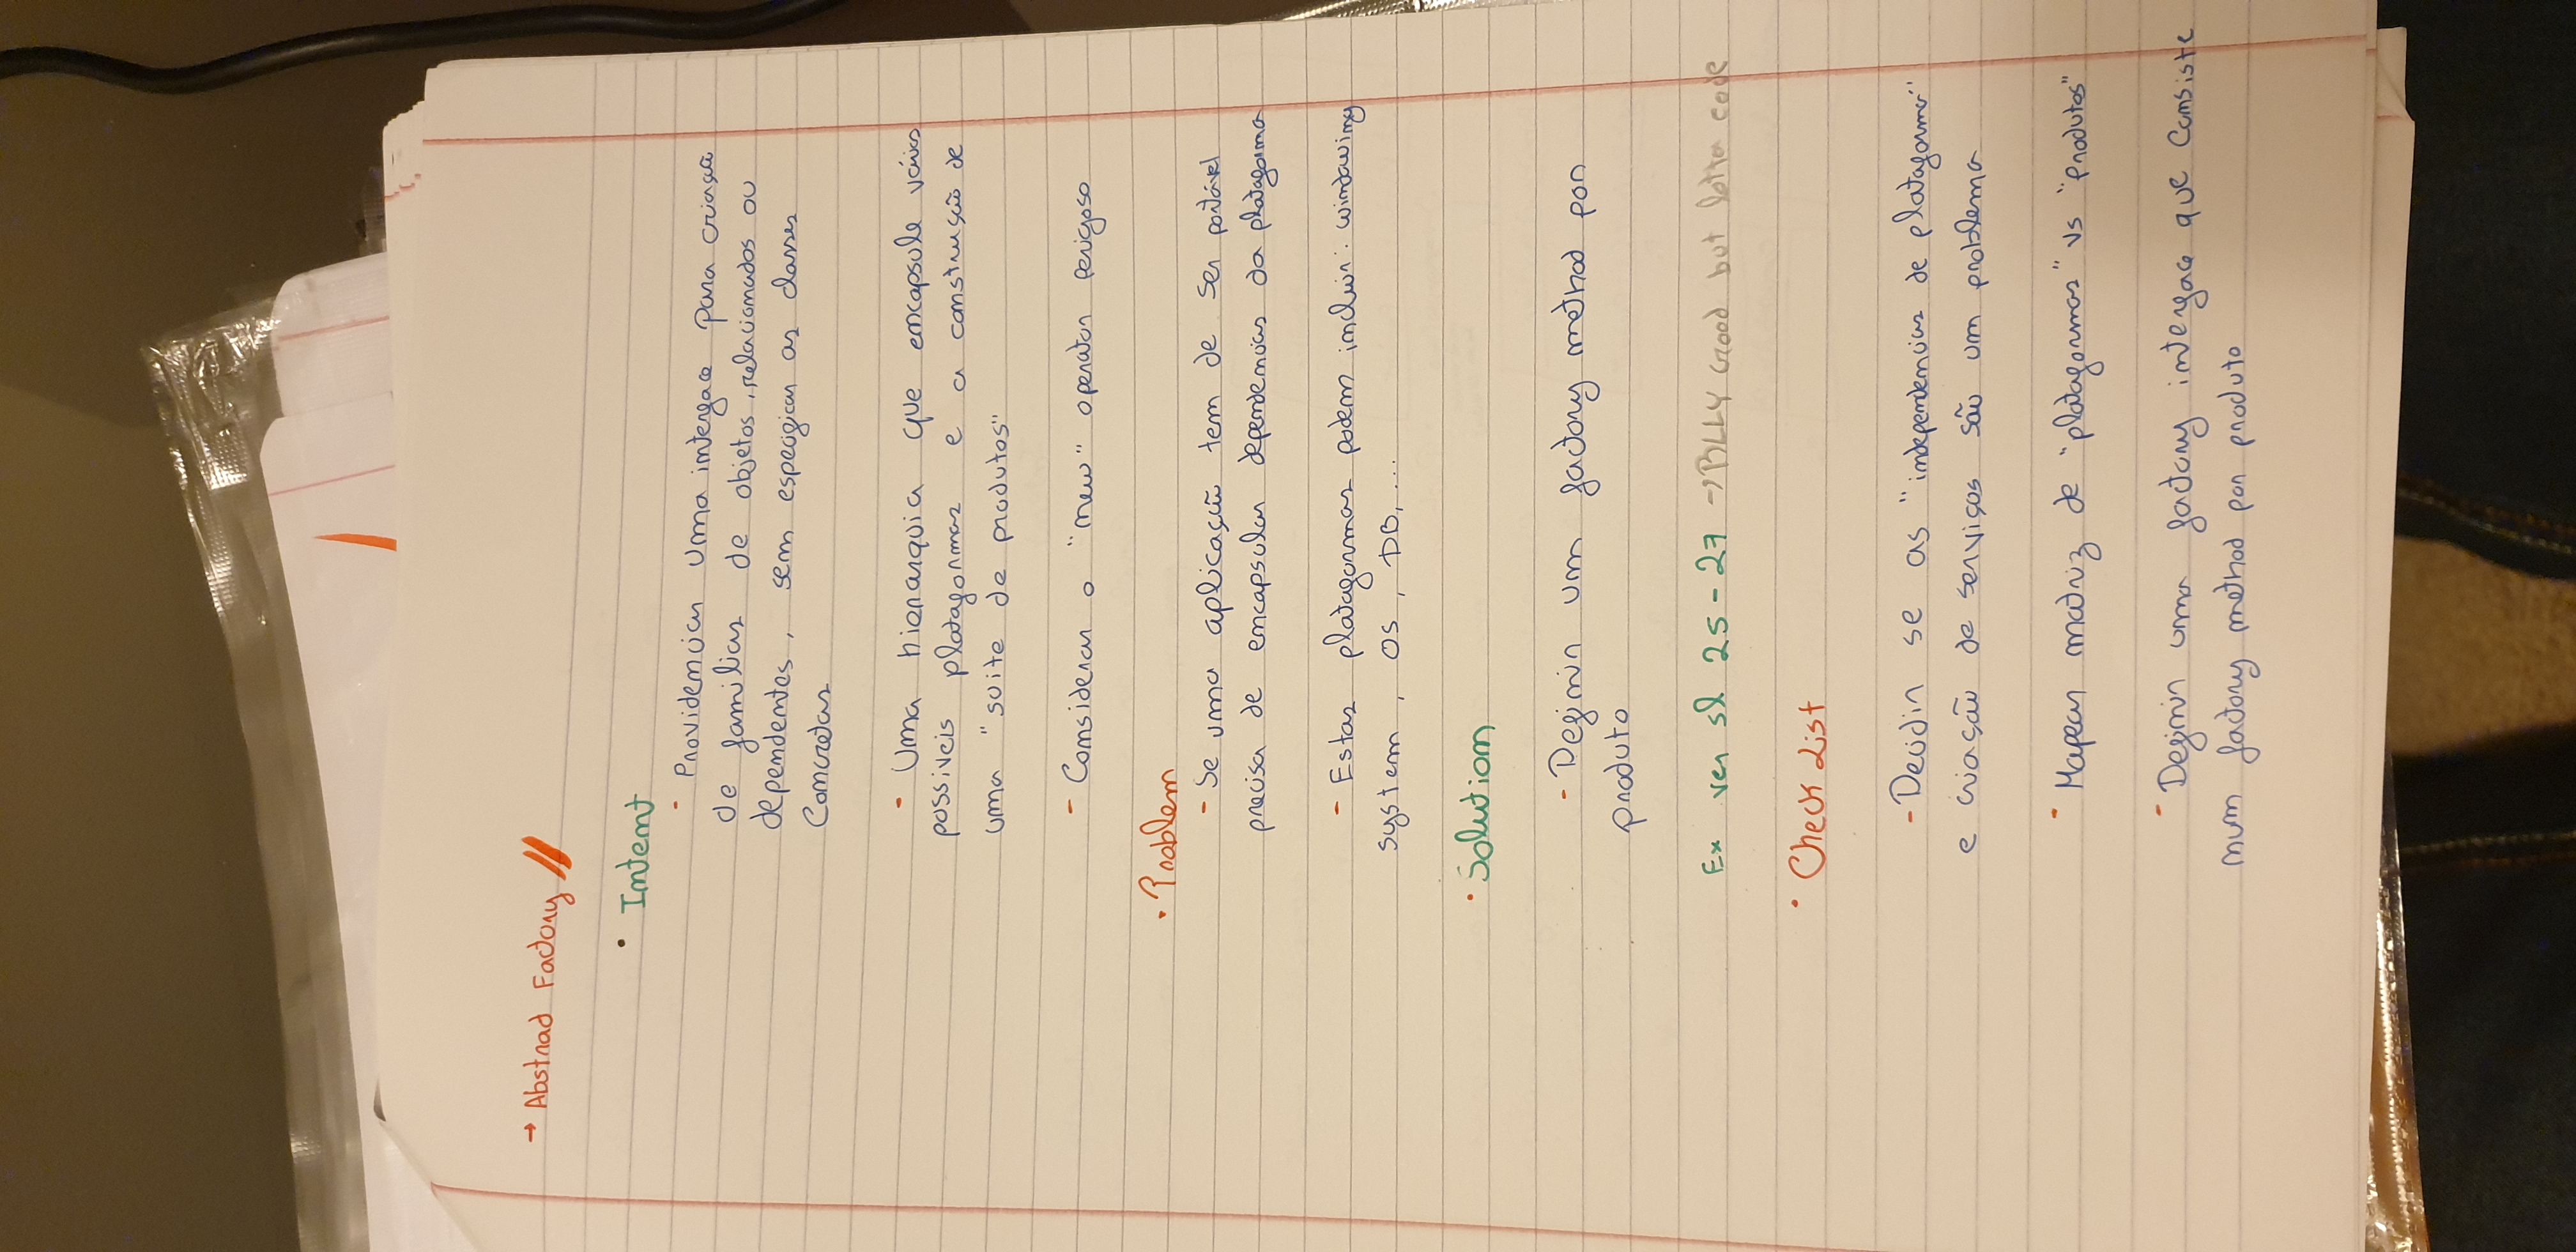 → Abstract Factory //
• Intent
- Providenciar uma interface para criação
de familias de objetos, relacionados ou
dependentes, sem especificar as classes
Concretas
- Uma hierarquia que encapsule vários
possiveis plataformas e a construção de
uma "suite de produtos"
- Considerar o "new" operator perigoso
• Problem
- Se uma aplicação tem de ser portável
precisa de encapsular dependencias da plataforma
- Estas plataformas podem incluir: windowing
system, OS, DB, ...
• Solution
- Definir um factory method por
produto
Ex ver sl 25-27 → RLLY Good but lotta code
• Check List
- Decidir se as "independencias de plataforma"
e criação de serviços são um problema
- Mapear matriz de "plataformas" vs "produtos"
- Definir uma factory interface que consiste
num factory method por produto